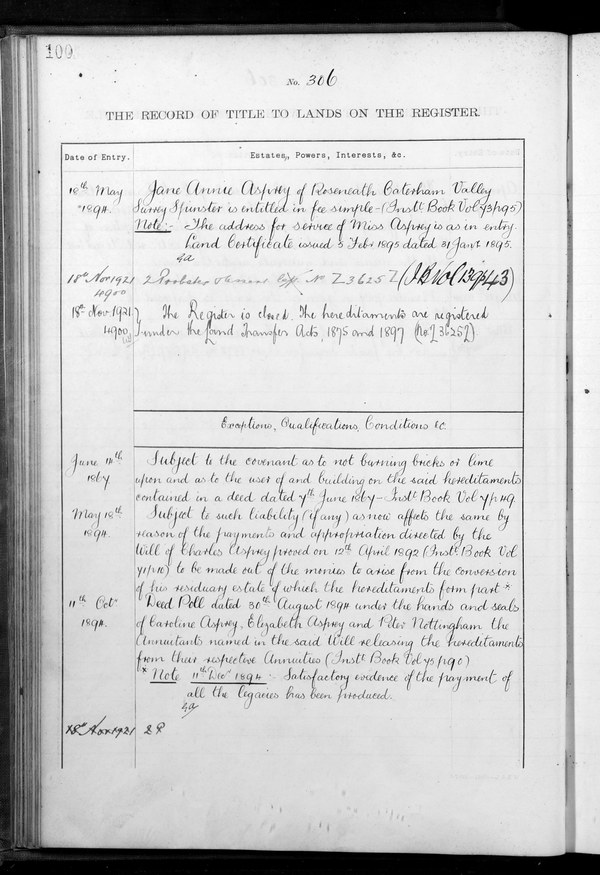 100
No. 306
THE RECORD OF TITLE TO LANDS ON THE REGISTER
Date of Entry. Estates, Powers, Interests, &c.
18th May Jane Annie Asprey of Roseneath Caterham Valley
1894. Surrey Spinster is entitled in fee simple - (Inst. Book Vol 43 p 95)
Note:- The address for service of Miss Asprey is as in entry.
Land Certificate issued 5 Feby 1895 dated 31 Jany 1895.
18th Nov 1921 No Z36252 (I.B. Vol 139 p 143)
4900
18th Nov. 1921 The Register is closed. The hereditaments are registered
4900 under the Land Transfer Acts, 1875 and 1897 (No Z 36252)
Exceptions, Qualifications, Conditions &c.
June 14th Subject to the covenant as to not burning bricks or lime
1867 upon and as to the user of and building on the said hereditaments
contained in a deed dated 7th June 1867 - Inst. Book Vol 4 p 119.
May 18th Subject to such liability (if any) as now affects the same by
1894. reason of the payments and appropriation directed by the
Will of Charles Asprey proved on 12th April 1892 (Inst. Book Vol
to be made out of the monies to arise from the conversion
of his residuary estate of which the hereditaments form part *
11th Octr Deed Poll dated 30th August 1894 under the hands and seals
1894. of Caroline Asprey, Elizabeth Asprey and Peter Nottingham the
Annuitants named in the said Will releasing the hereditaments
from their respective Annuities (Inst. Book Vol 45 p 90)
* Note 11th Decr 1894 :- Satisfactory evidence of the payment of
all the legacies has been produced.
18th Nov 1921